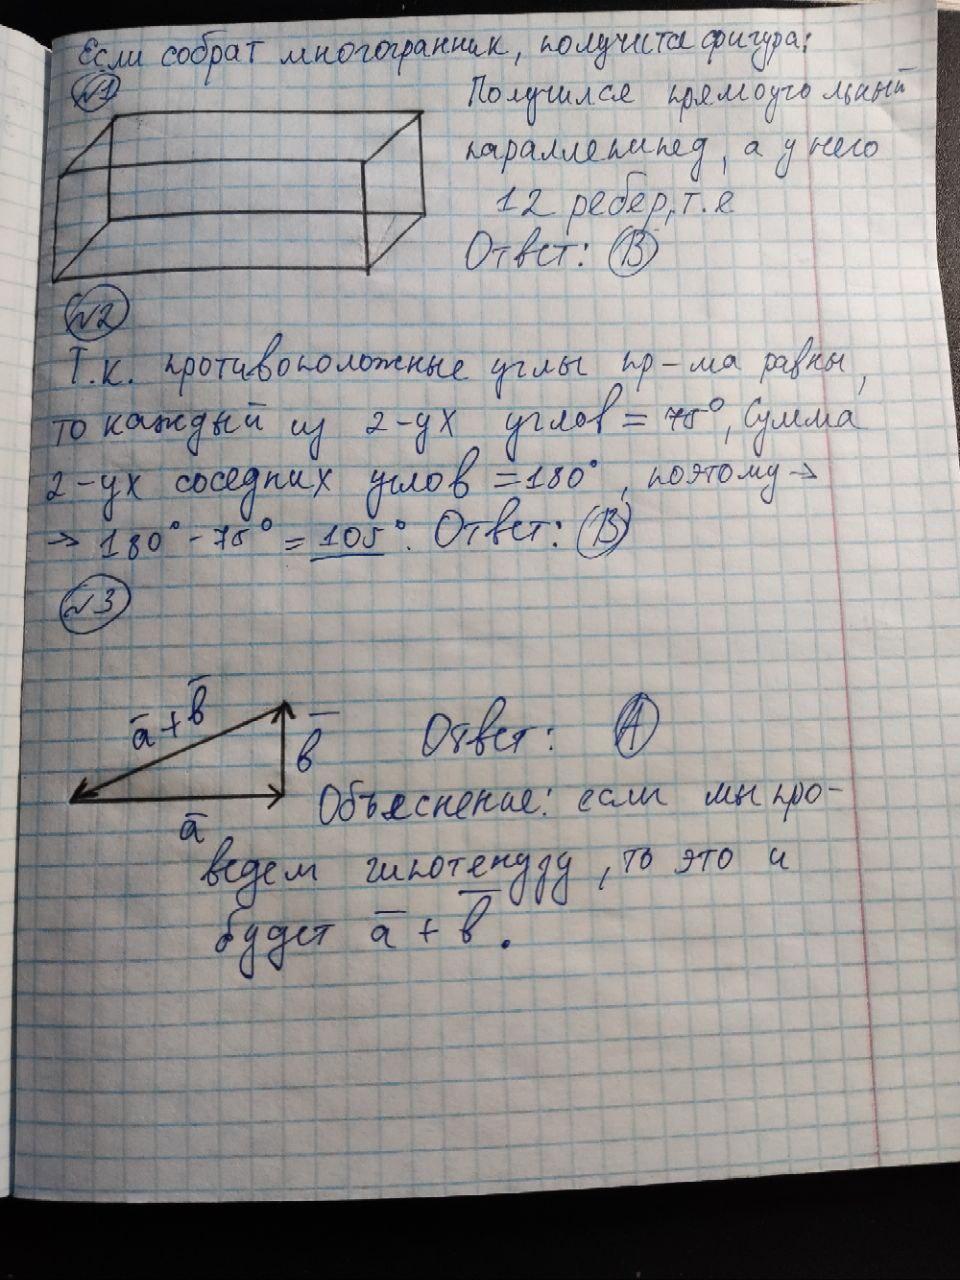 Если собрат многогранник, получится фигура:
№1
Получился прямоугольный
параллепипед, а у него
12 ребер, т.е
Ответ: В
№2
Т.к. противоположные углы пр-ма равны,
то каждый из 2-ух углов = 75°, Сумма
2-ух соседних углов = 180°, поэтому →
→ 180° - 75° = 105°. Ответ: В
№3
a̅ + b̅
b̅
a̅
Ответ: А
Объяснение: если мы про-
ведем гипотенузу, то это и
будет a̅ + b̅.